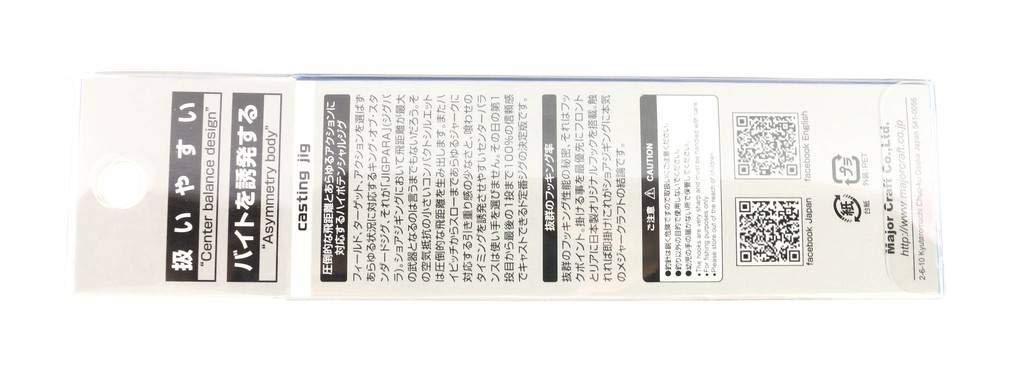 扱いやすい
“Center balance design”
バイトを誘発する
“Asymmetry body”
casting jig
圧倒的な飛距離とあらゆるアクションに
対応するハイポテンシャルジグ
フィールド、ターゲット、アクションを選ばず
あらゆる状況に対応するキング・オブ・スタ
ンダードジグ、それが「JIGPARA」(ジグパ
ラ)。ショアジギングにおいて飛距離が最大
の武器となるのは言うまでもないだろう。そ
の空気抵抗の小さいコンパクトシルエット
は圧倒的な飛距離を生み出します。またハ
イピッチからスローまであらゆるジャークに
対応する引き重り感の少なさと、喰わせの
タイミングを誘発させやすいセンターバラ
ンスは使い手を選びません。その日の第1
投目から最後の1投まで100%の信頼感
でキャストできるド定番ジグの決定版です。
抜群のフッキング率
抜群のフッキング性能の秘密、それはフッ
クポイント。掛ける事を最優先にフロント
とリアに日本製オリジナルフックを搭載。触
れれば即掛け!これがショアジギングに本気
のメジャークラフトの結論です。
ご注意 CAUTION
●釣針は鋭く危険ですので取扱いにご注意ください。
●釣り以外の目的で使用しないでください。
●幼児の手の届かない所で保管してください。
●For fishing purposes only.
●Please store out of the reach of children.
facebook Japan
facebook English
紙
台紙
プラ
外袋:PET
Major Craft Co.,Ltd.
http://www.majorcraft.co.jp